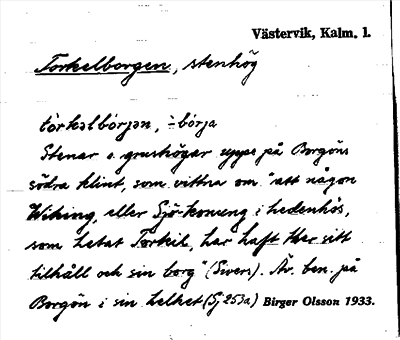 Västervik, Kalm. l.
Torkelborgen, stenhög
tòrkəlbórjən, ∸ bórja
Stenar o. grushögar uppe på Borgöns
södra klint, som vittna om "att någon
Wiking, eller Sjö-konung i hedenhös,
som hetat Torkeil, har haft Her sitt
tillhåll och sin borg" (Sivers). Äv. ben. på
Borgön i sin helhet (Sj 253a) Birger Olsson 1933.